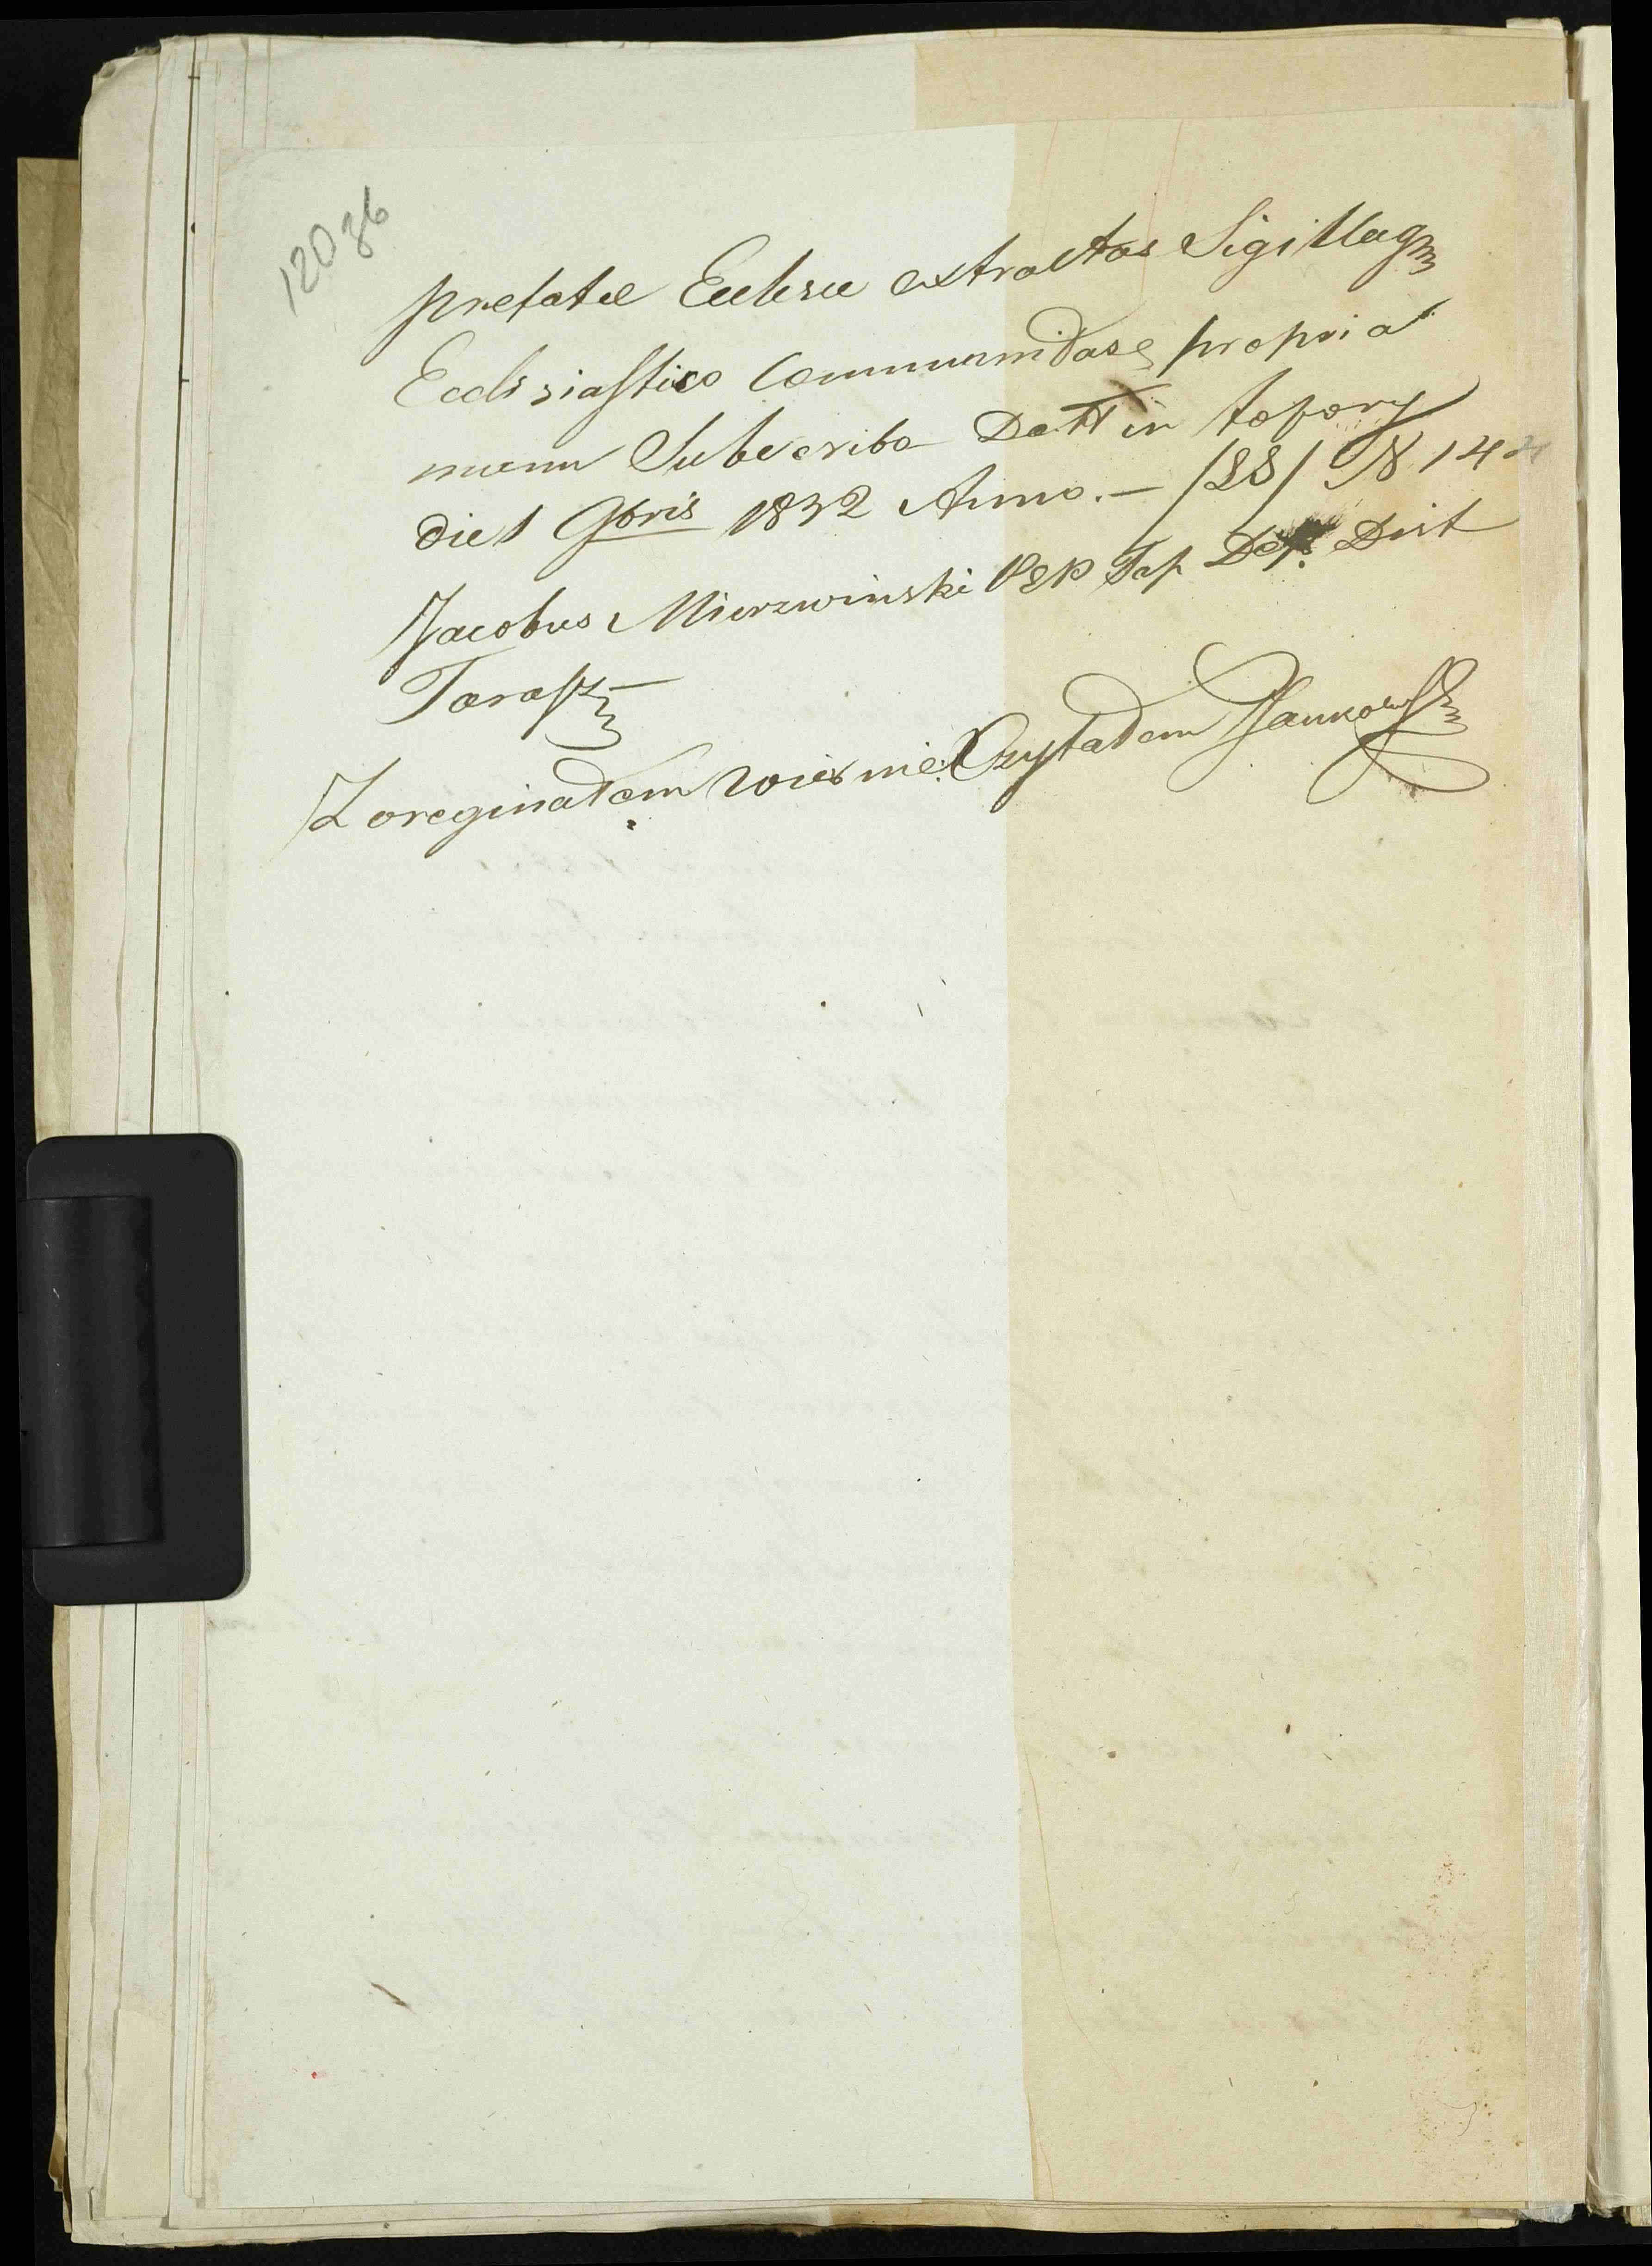 120 36
prefatæ Eccłesiæ extractas Sigilloq
Ecclesiastico Communidasq propria
manu Subscribo Datt in topory
die 1 9bris 1832 Anno. — /LS/ N 144
Jacobus Mierzwinski PEP Top Dep: Dist
Tarasz
Z oreginałem wiernie Czytałem Jankowski